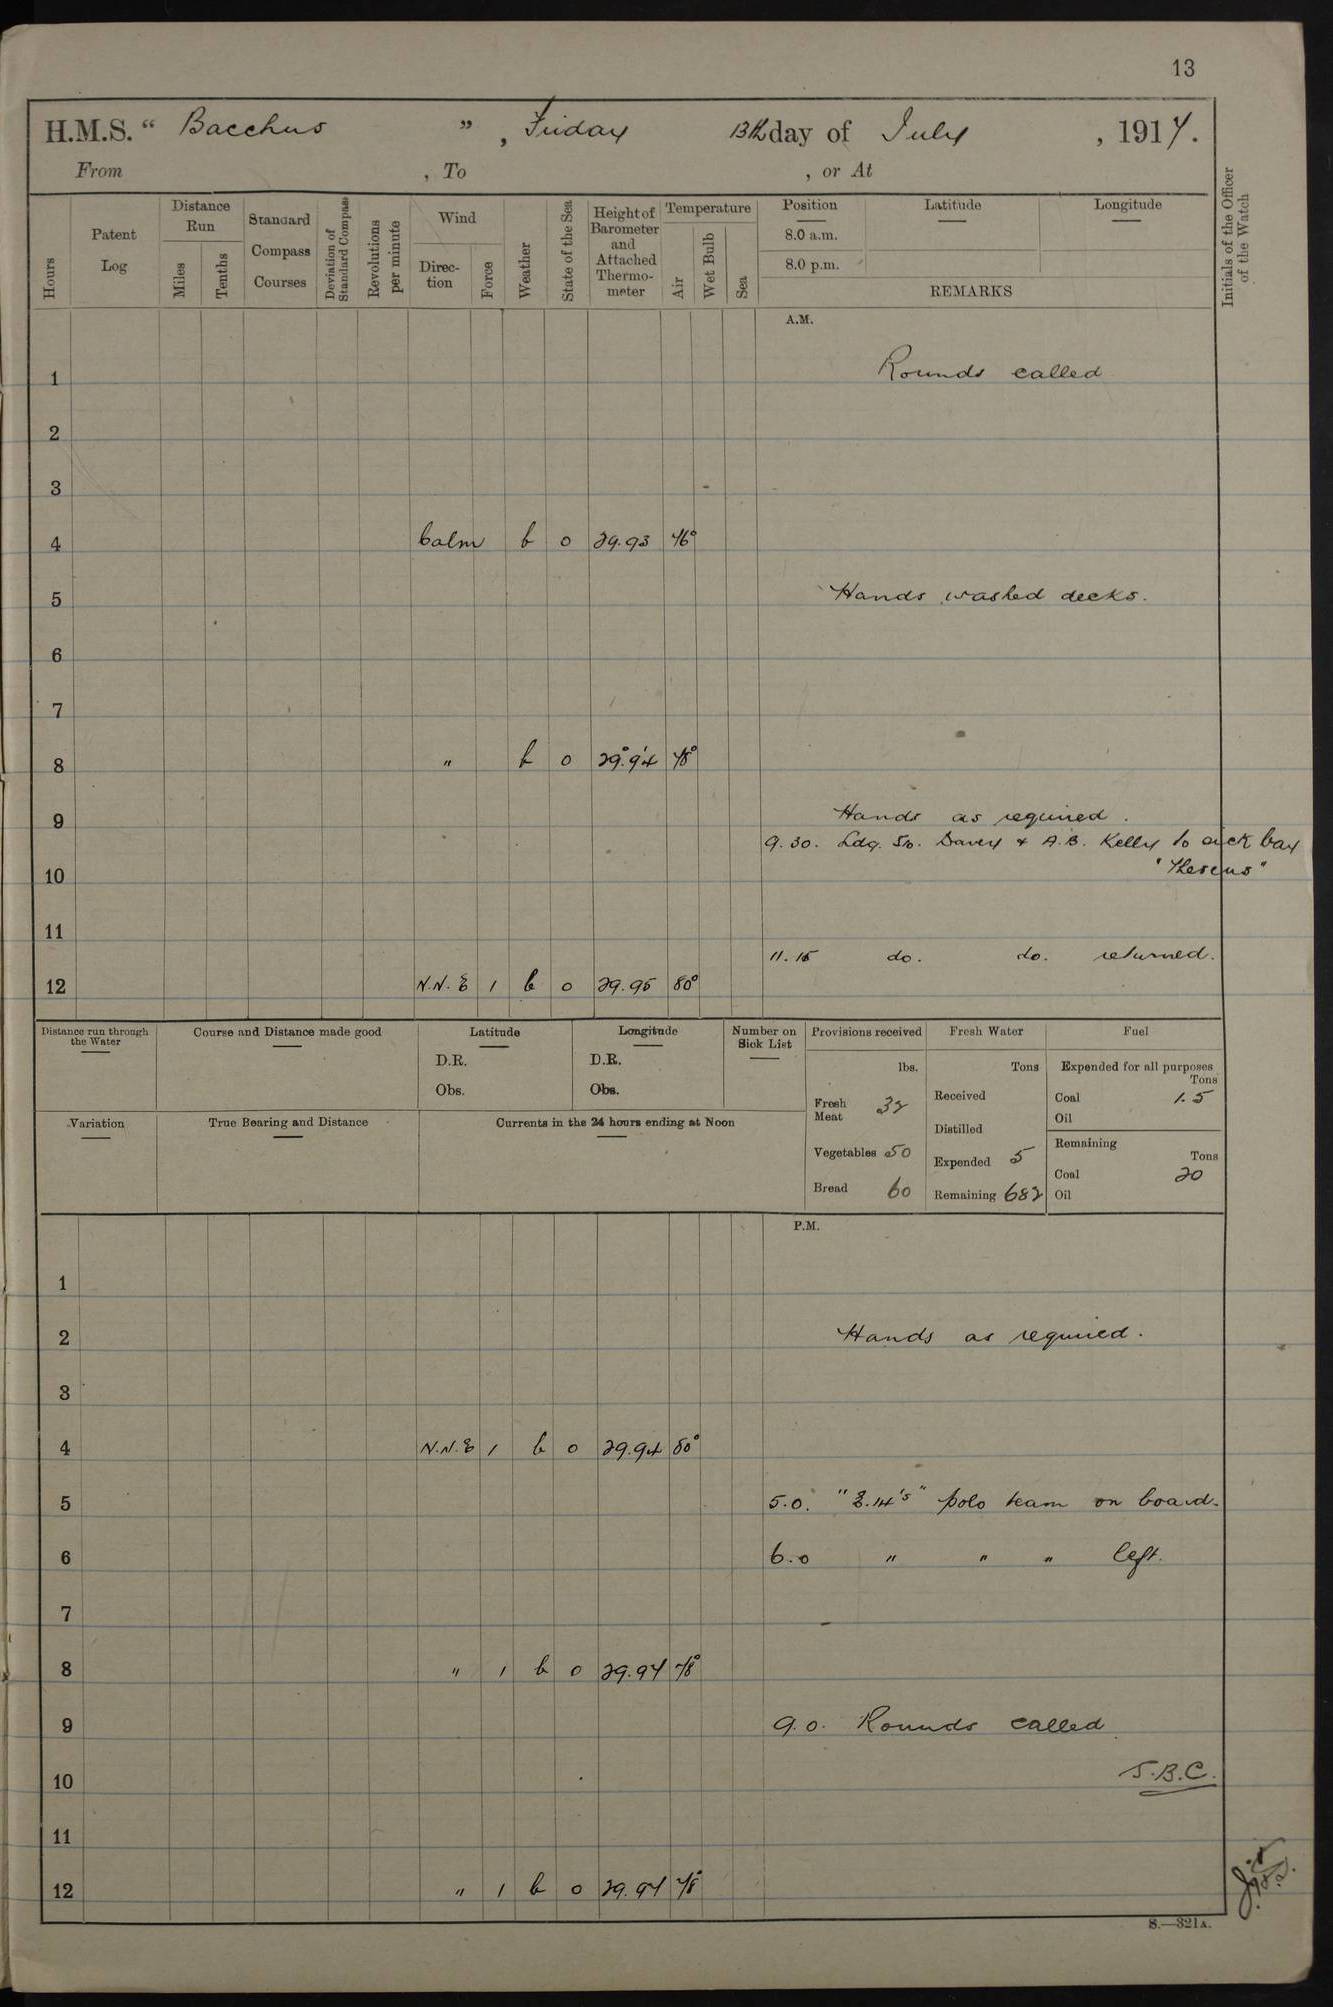 13
H.M.S. “ Bacchus ” , Friday 13th day of July , 1917.
From , To , or At
Hours
Patent Log
Distance Run
Miles
Tenths
Standard Compass Courses
Deviation of Standard Compass
Revolutions per minute
Wind
Direc-tion
Force
Weather
State of the Sea
Height of Barometer and Attached Thermo-meter
Temperature
Air
Wet Bulb
Sea
Position Latitude Longitude
8.0 a.m.
8.0 p.m.
REMARKS
Initials of the Officer of the Watch
A.M.
1 Rounds called
2
3
4 Calm b 0 29.93 76°
5 Hands washed decks.
6
7
8 " b 0 29.94 78°
9 Hands as required.
9.30. Ldg. Sto. Davey & A.B. Kelly to sick bay
10 "Theseus"
11
11.15 do. do. returned.
12 N.N.E 1 b 0 29.95 80°
Distance run through the Water
Course and Distance made good
Latitude
D.R.
Obs.
Longitude
D.R.
Obs.
Number on Sick List
Provisions received
lbs.
Fresh Meat 32
Vegetables 50
Bread 60
Fresh Water
Tons
Received
Distilled
Expended 5
Remaining 682
Fuel
Expended for all purposes
Tons
Coal 1.5
Oil
Remaining
Tons
Coal 20
Oil
Variation
True Bearing and Distance
Currents in the 24 hours ending at Noon
P.M.
1
2 Hands as required.
3
4 N.N.E 1 b 0 29.94 80°
5 5.0. "E.14's" polo team on board.
6 6.0 " " " left.
7
8 " 1 b 0 29.97 78°
9 9.0. Rounds called
10 S.B.C.
11
12 " 1 b 0 29.97 78°
S.—321A.